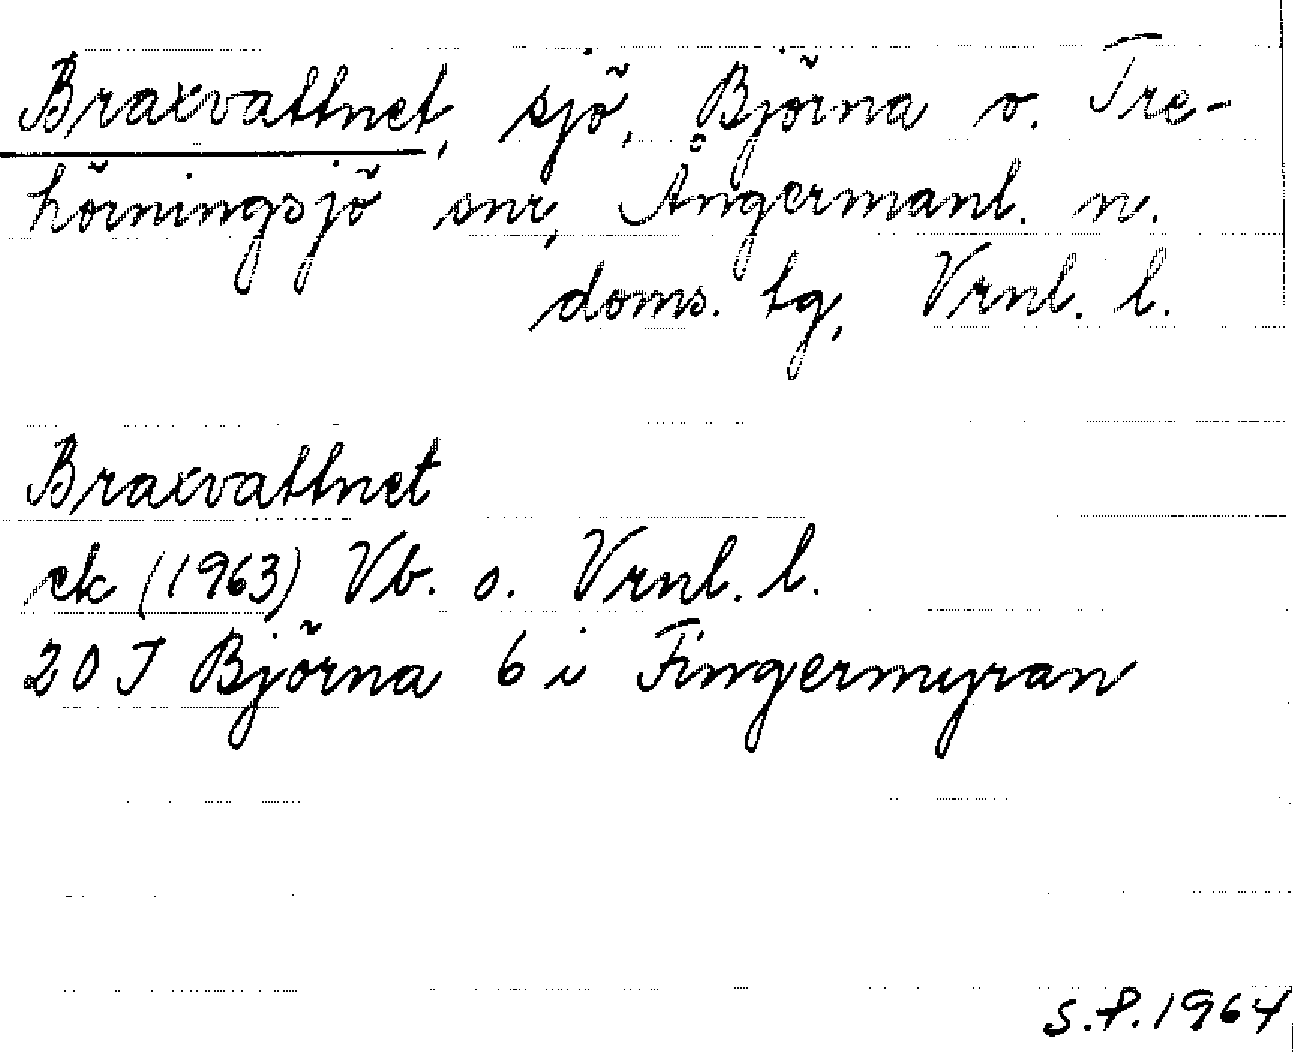 Braxvattnet, sjö, Björna o. Tre-
hörningsjö snr, Ångermanl. n.
doms. tg, Vrnl. l.
Braxvattnet
ek (1963) Vb. o. Vrnl. l.
20 J Björna 6 i Fingermyran
S.P. 1964